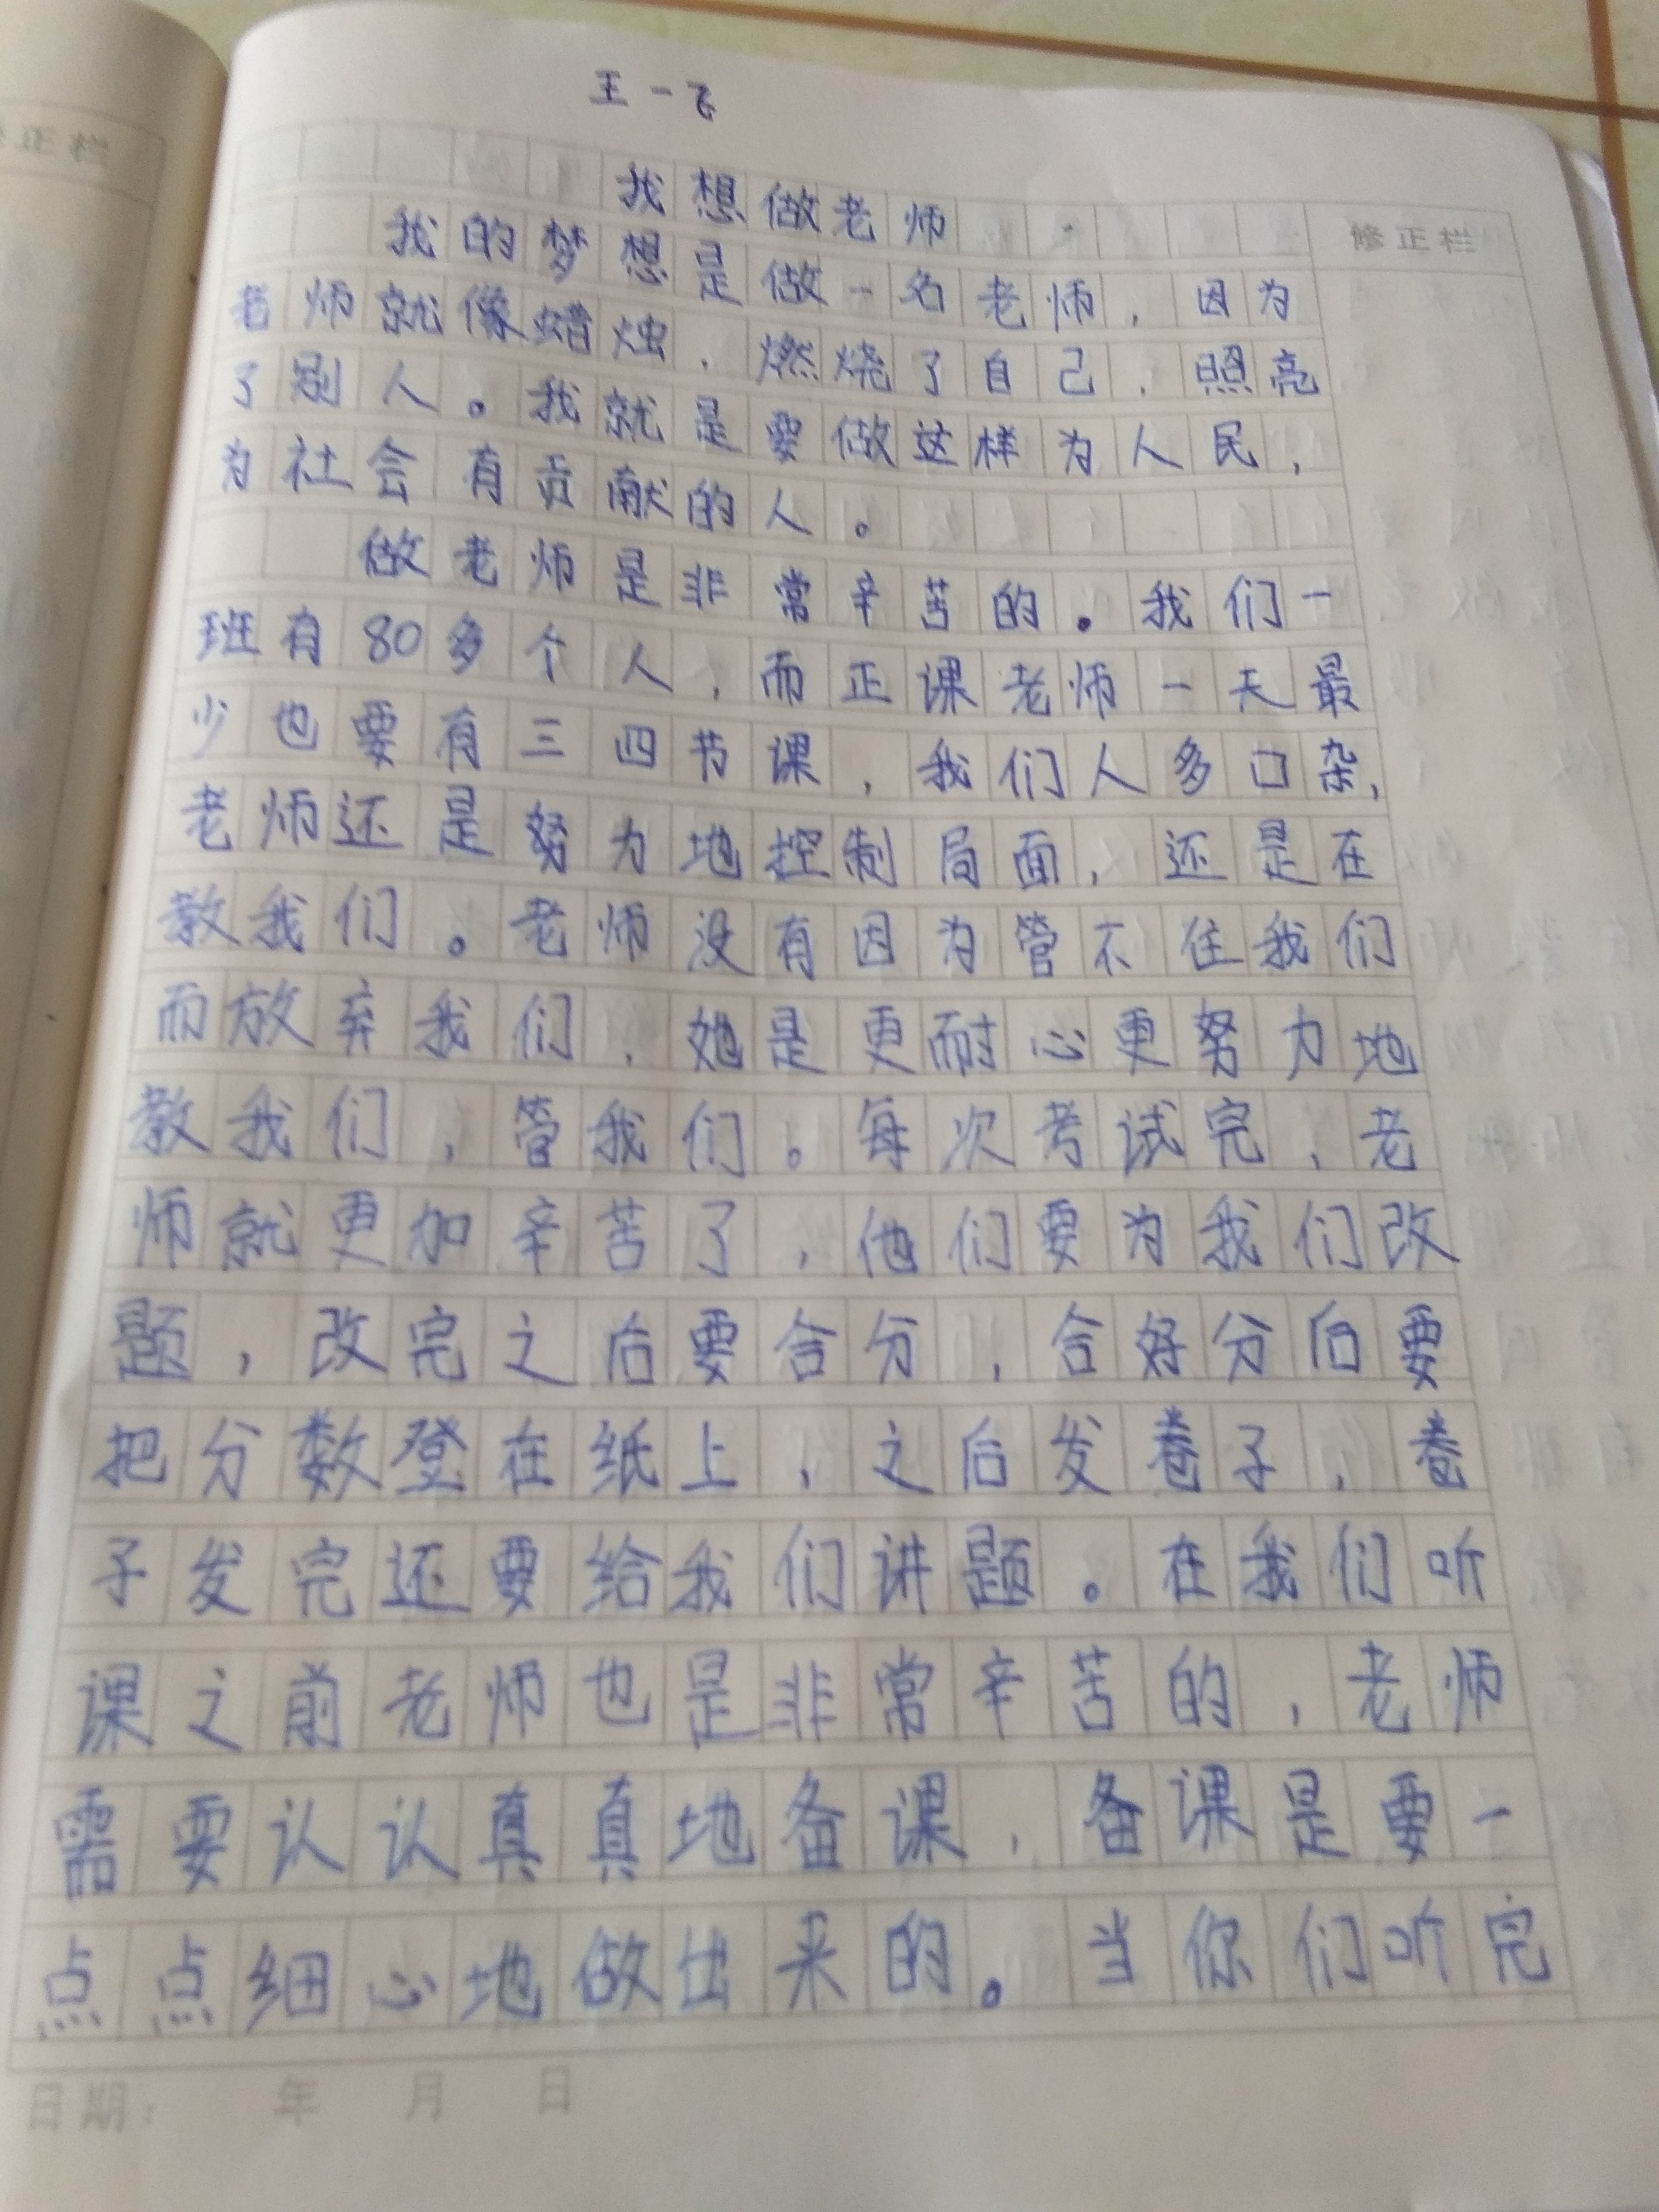 王一飞
修正栏
我想做老师
修正栏
我的梦想是做一名老师，因为
老师就像蜡烛，燃烧了自己，照亮
了别人。我就是要做这样为人民，
为社会有贡献的人。
做老师是非常辛苦的。我们一
班有80多个人，而正课老师一天最
少也要有三四节课，我们人多口杂，
老师还是努力地控制局面，还是在
教我们。老师没有因为管不住我们
而放弃我们，她是更耐心更努力地
教我们，管我们。每次考试完，老
师就更加辛苦了，他们要为我们改
题，改完之后要合分，合好分后要
把分数登在纸上，之后发卷子，卷
子发完还要给我们讲题。在我们听
课之前老师也是非常辛苦的，老师
需要认认真真地备课，备课是要一
点点细心地做出来的。当你们听完
日期： 年 月 日